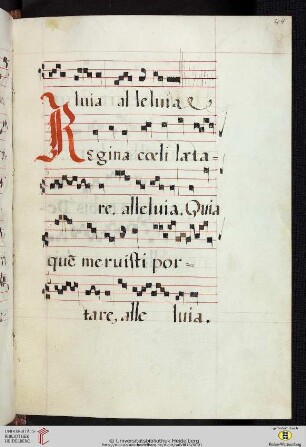 luia al le luia
Regina cœli læta=
re, alleluia. Quia
quē meruisti por-
tare, alle luia.
UNIVERSITÄTS-
BIBLIOTHEK
HEIDELBERG
© Universitätsbibliothek Heidelberg